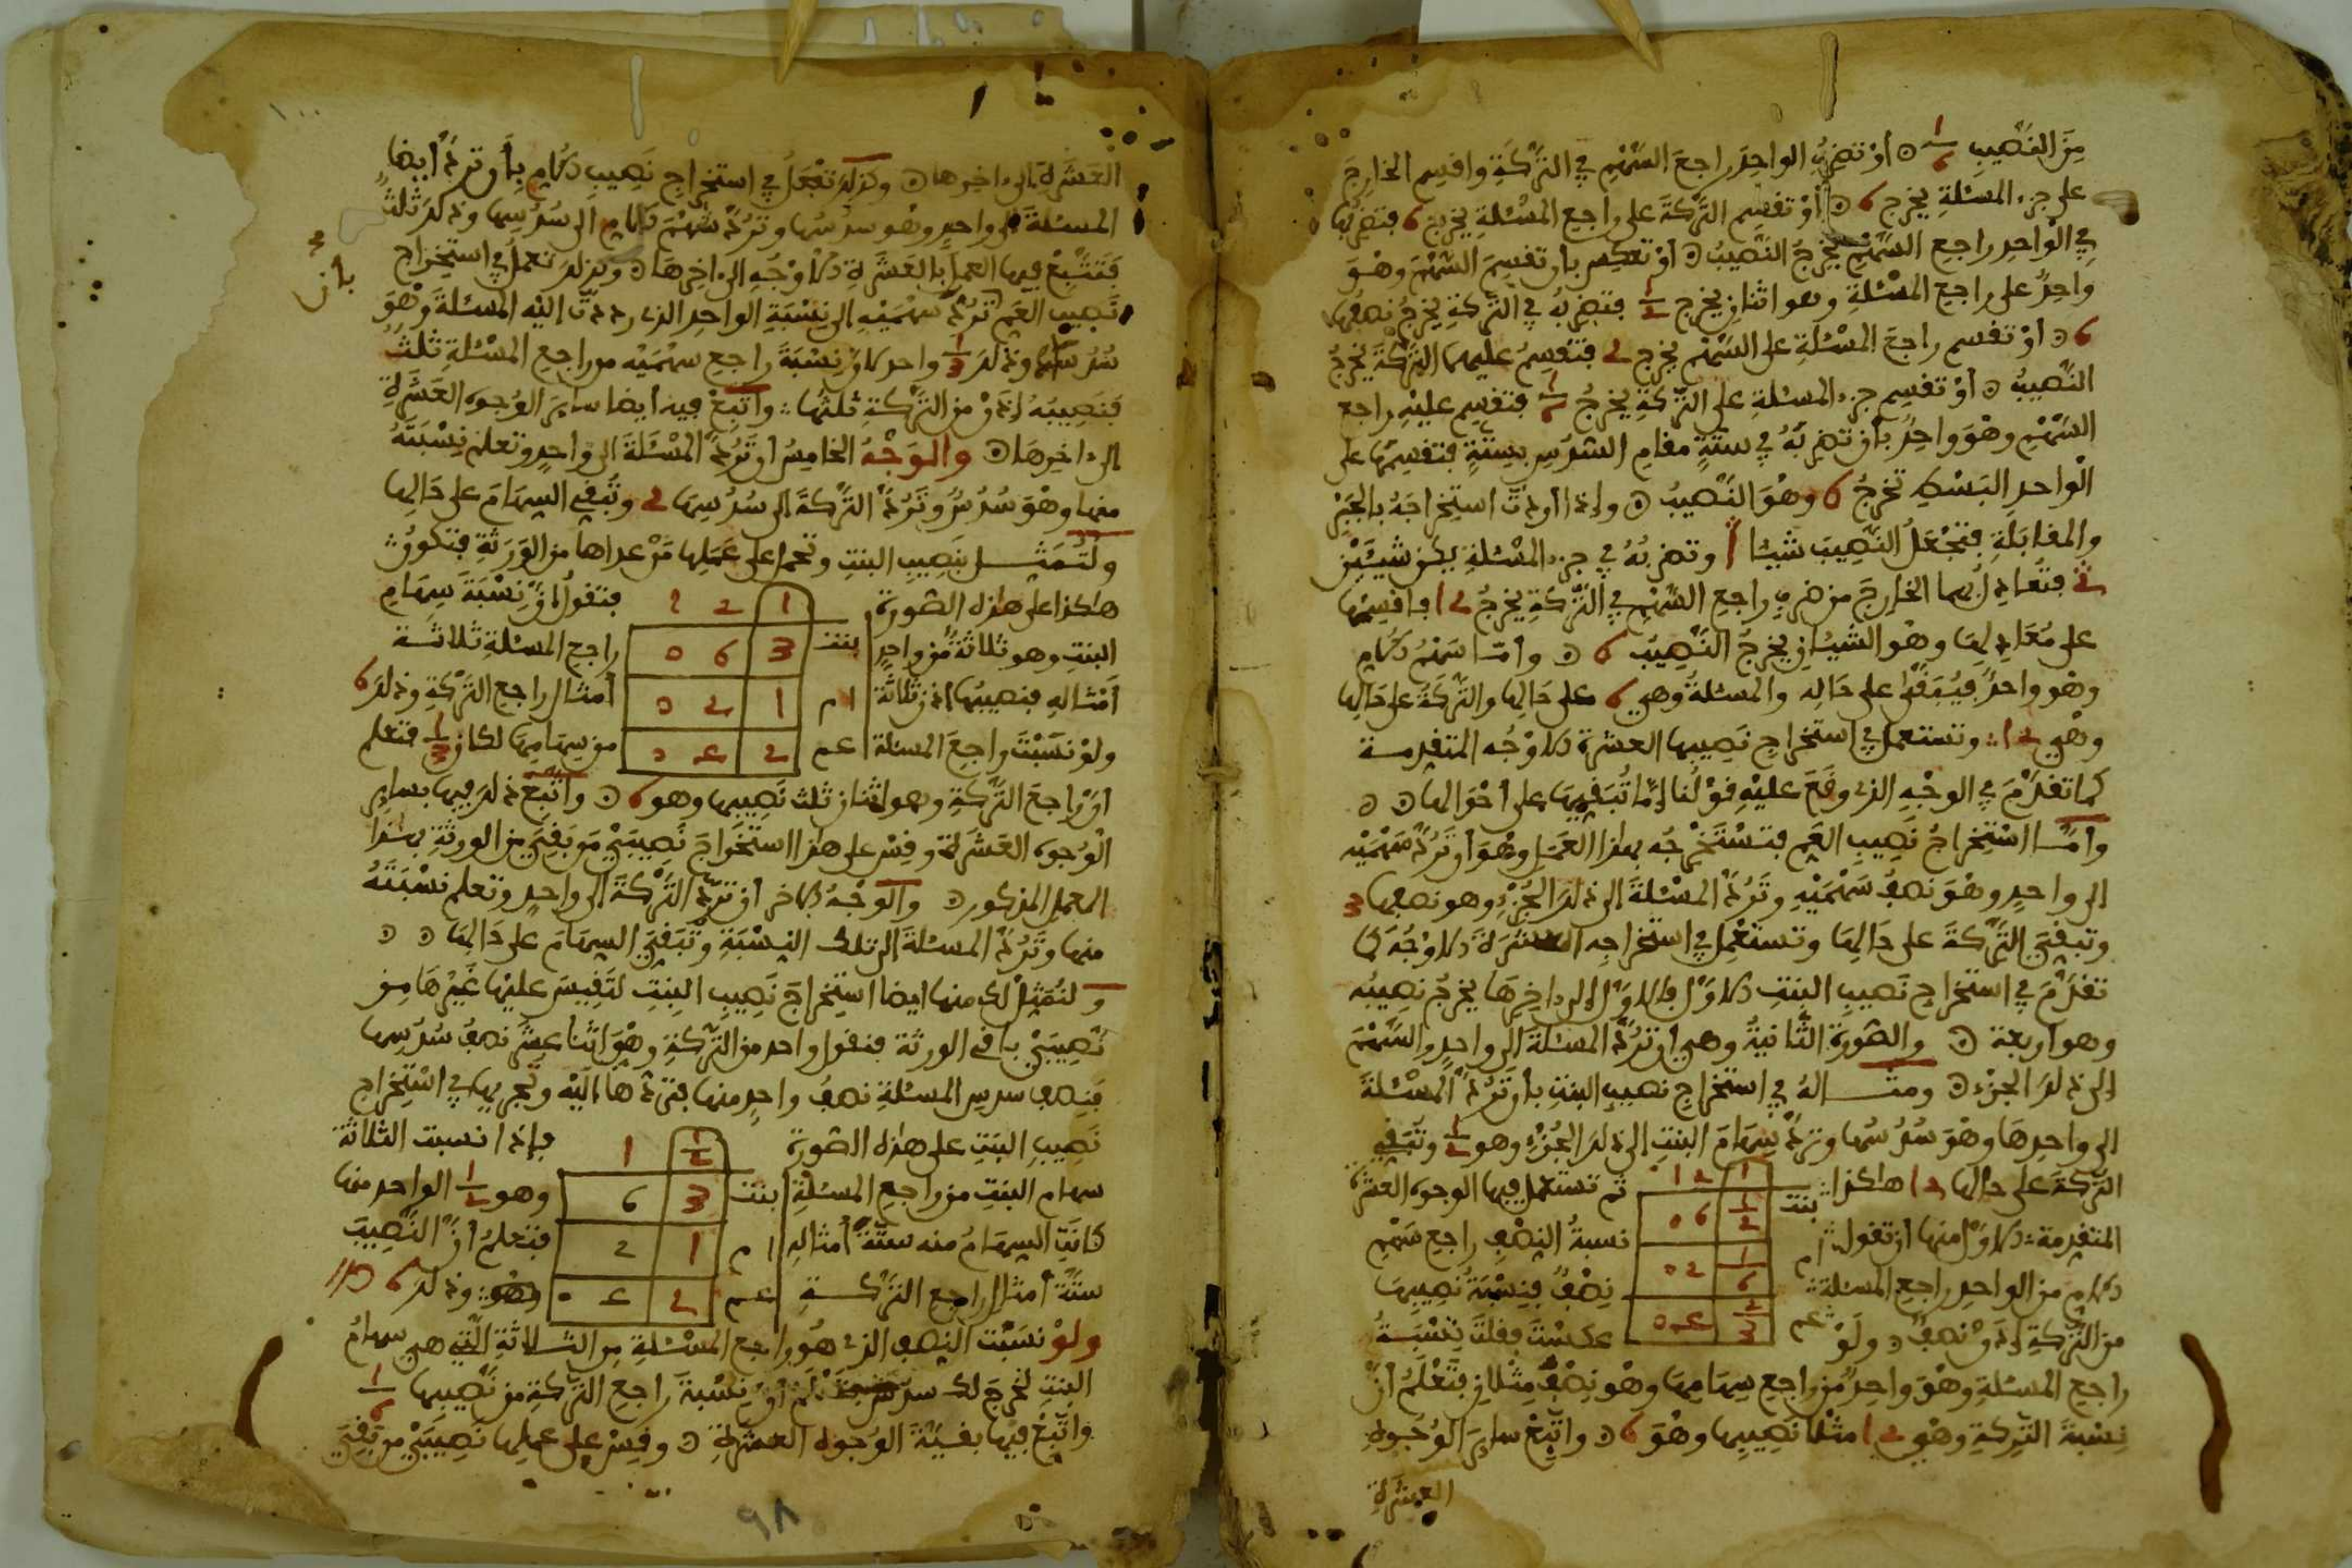 من النصيب 1/6 ⊙ أو تضرب الواحد راجع السهم في التركة واقسم الخارج
على جزء المسئلة يخرج 6 ⊙ أو تقسم التركة على راجع المسئلة يخرج 6 فتضربها
في الواحد راجع السهم يخرج النصيب ⊙ أو تعكس بأن تقسم السهم وهو
واحد على راجع المسئلة وهو اثنان يخرج 1/2 فتضربه في التركة يخرج نصفها
6 ⊙ أو تقسم راجع المسئلة على السهم يخرج 2 فتقسم عليهما التركة يخرج
النصيب ⊙ أو تقسم جزء المسئلة على التركة يخرج 1/6 فتقسم عليه راجع
السهم وهو واحد بأن تضربه في ستة مقام السدس بستة فتقسمها على
الواحد البسط تخرج 6 وهو النصيب ⊙ وإذا أردت استخراجه بالجبر
والمقابلة فتجعل النصيب شيئا وتضربه في جزء المسئلة يكن شيئين
2 فتعادل بهما الخارج من ضرب راجع السهم في التركة يخرج 12 فاقسمها
على معادلها وهو الشيئان يخرج النصيب 6 ⊙ وأما سهم الأم
وهو واحد فيبقى على حاله والمسئلة وهي 6 على حالها والتركة على حالها
وهي 12 وتستعمل في استخراج نصيبها العشرة الأوجه المتقدمة
كما تقدم في الوجه الذي وقع عليه قولنا إما تبقيها على أحوالها ⊙ ⊙
وأما استخراج نصيب العم فتستخرجه بهذا العمل وهو أن ترد سهميه
إلى واحد وهو نصف سهميه وترد المسئلة إلى ذلك الجزء وهو نصفها 3
وتبقي التركة على حالها وتستعمل في استخراجه العشرة الأوجه كما
تقدم في استخراج نصيب البنت الأول فالأول إلى آخرها يخرج نصيبه
وهو أربعة ⊙ والصورة الثانية وهي أن ترد المسئلة إلى واحد والسهم
إلى ذلك الجزء ⊙ ومثاله في استخراج نصيب البنت بأن ترد المسئلة
إلى واحدها وهو سدسها وترد سهام البنت إلى ذلك الجزء وهو 1/2 وتبقي
التركة على حالها 12 هاكذا 1 12 ثم تستعمل فيها الوجوه العشرة
بنت 1/2 06
المتقدمة الأول منها أن تقول نسبة النصف راجع سهم
أم 1/6 02
الأم من الواحد راجع المسئلة نصف فنسبة نصيبها
عم 2/3 04
من التركة إذن نصف ⊙ ولو عكست فقلت نسبة
راجع المسئلة وهو واحد من راجع سهامها وهو نصف مثلان فتعلم أن
نسبة التركة وهو 12 مثلا نصيبها وهو 6 ⊙ واتبع ساير الوجوه
العشرة
العشرة إلى آخرها ⊙ وكذلك تفعل في استخراج نصيب الأم بأن ترد أيضا
المسئلة إلى واحد وهو سدسها وترد سهم الأم إلى سدسها وذلك ثلث
فتتبع فيها العمل بالعشرة الأوجه إلى آخرها ⊙ وكذلك تعمل في استخراج
بأن
نصيب العم ترد سهميه إلى نسبة الواحد الذي رددت إليه المسئلة وهو
سدسها وذلك 1/3 واحد لأن نسبة راجع سهميه من راجع المسئلة ثلث
فنصيبه إذن من التركة ثلثها واتبع فيه أيضا ساير الوجوه العشرة
إلى آخرها ⊙ والوجه الخامس أن ترد المسئلة إلى واحد وتعلم نسبته
منها وهو سدس وترد التركة إلى سدسها 2 وتبقي السهام على حالها
ولتمثل بنصيب البنت وتحمل على عملها من عداها من الورثة فتكون
هاكذا على هذه الصورة 1 2 فتقول إن نسبة سهام
بنت 3 6 0
البنت وهو ثلاثة من واحد راجع المسئلة ثلاثة
أم 1 2 0
أمثاله فنصيبها إذن ثلاثة أمثال راجع التركة وذلك 6
عم 2 4 0
ولو نسبت راجع المسئلة من سهامها لكان 1/3 فتعلم
أن راجع التركة وهو اثنان ثلث نصيبها وهو 6 ⊙ واتبع ذلك فيها بساير
الوجوه العشرة وقس على هذا استخراج نصيبي من بقي من الورثة بهذا
العمل المذكور ⊙ والوجه الآخر أن ترد التركة إلى واحد وتعلم نسبته
منها وترد المسئلة إلى تلك النسبة وتبقي السهام على حالها ⊙ ⊙
ولنمثل لك منها أيضا استخراج نصيب البنت لتقيس عليها غيرها من
نصيبي باقي الورثة فنقول واحد من التركة وهو اثنا عشر نصف سدسها
فنصف سدس المسئلة نصف واحد منها فتردها إليه وتجري بها في استخراج
نصيب البنت على هذه الصورة 1/2 1 فإذا نسبت الثلاثة
بنت 3 6
سهام البنت من راجع المسئلة وهو 1/2 الواحد منها
أم 1 2
كانت السهام منه ستة أمثاله فتعلم أن النصيب
عم 2 4
ستة أمثال راجع التركة وذلك 6
ولو نسبت النصف الذي هو راجع المسئلة من الثلاثة التي هي سهام
البنت لخرج لك سدس أن نسبة راجع التركة من نصيبها 1/6
واتبع فيها بقية الوجوه العشرة ⊙ وقس على عملها نصيبي من بقي
٩٨